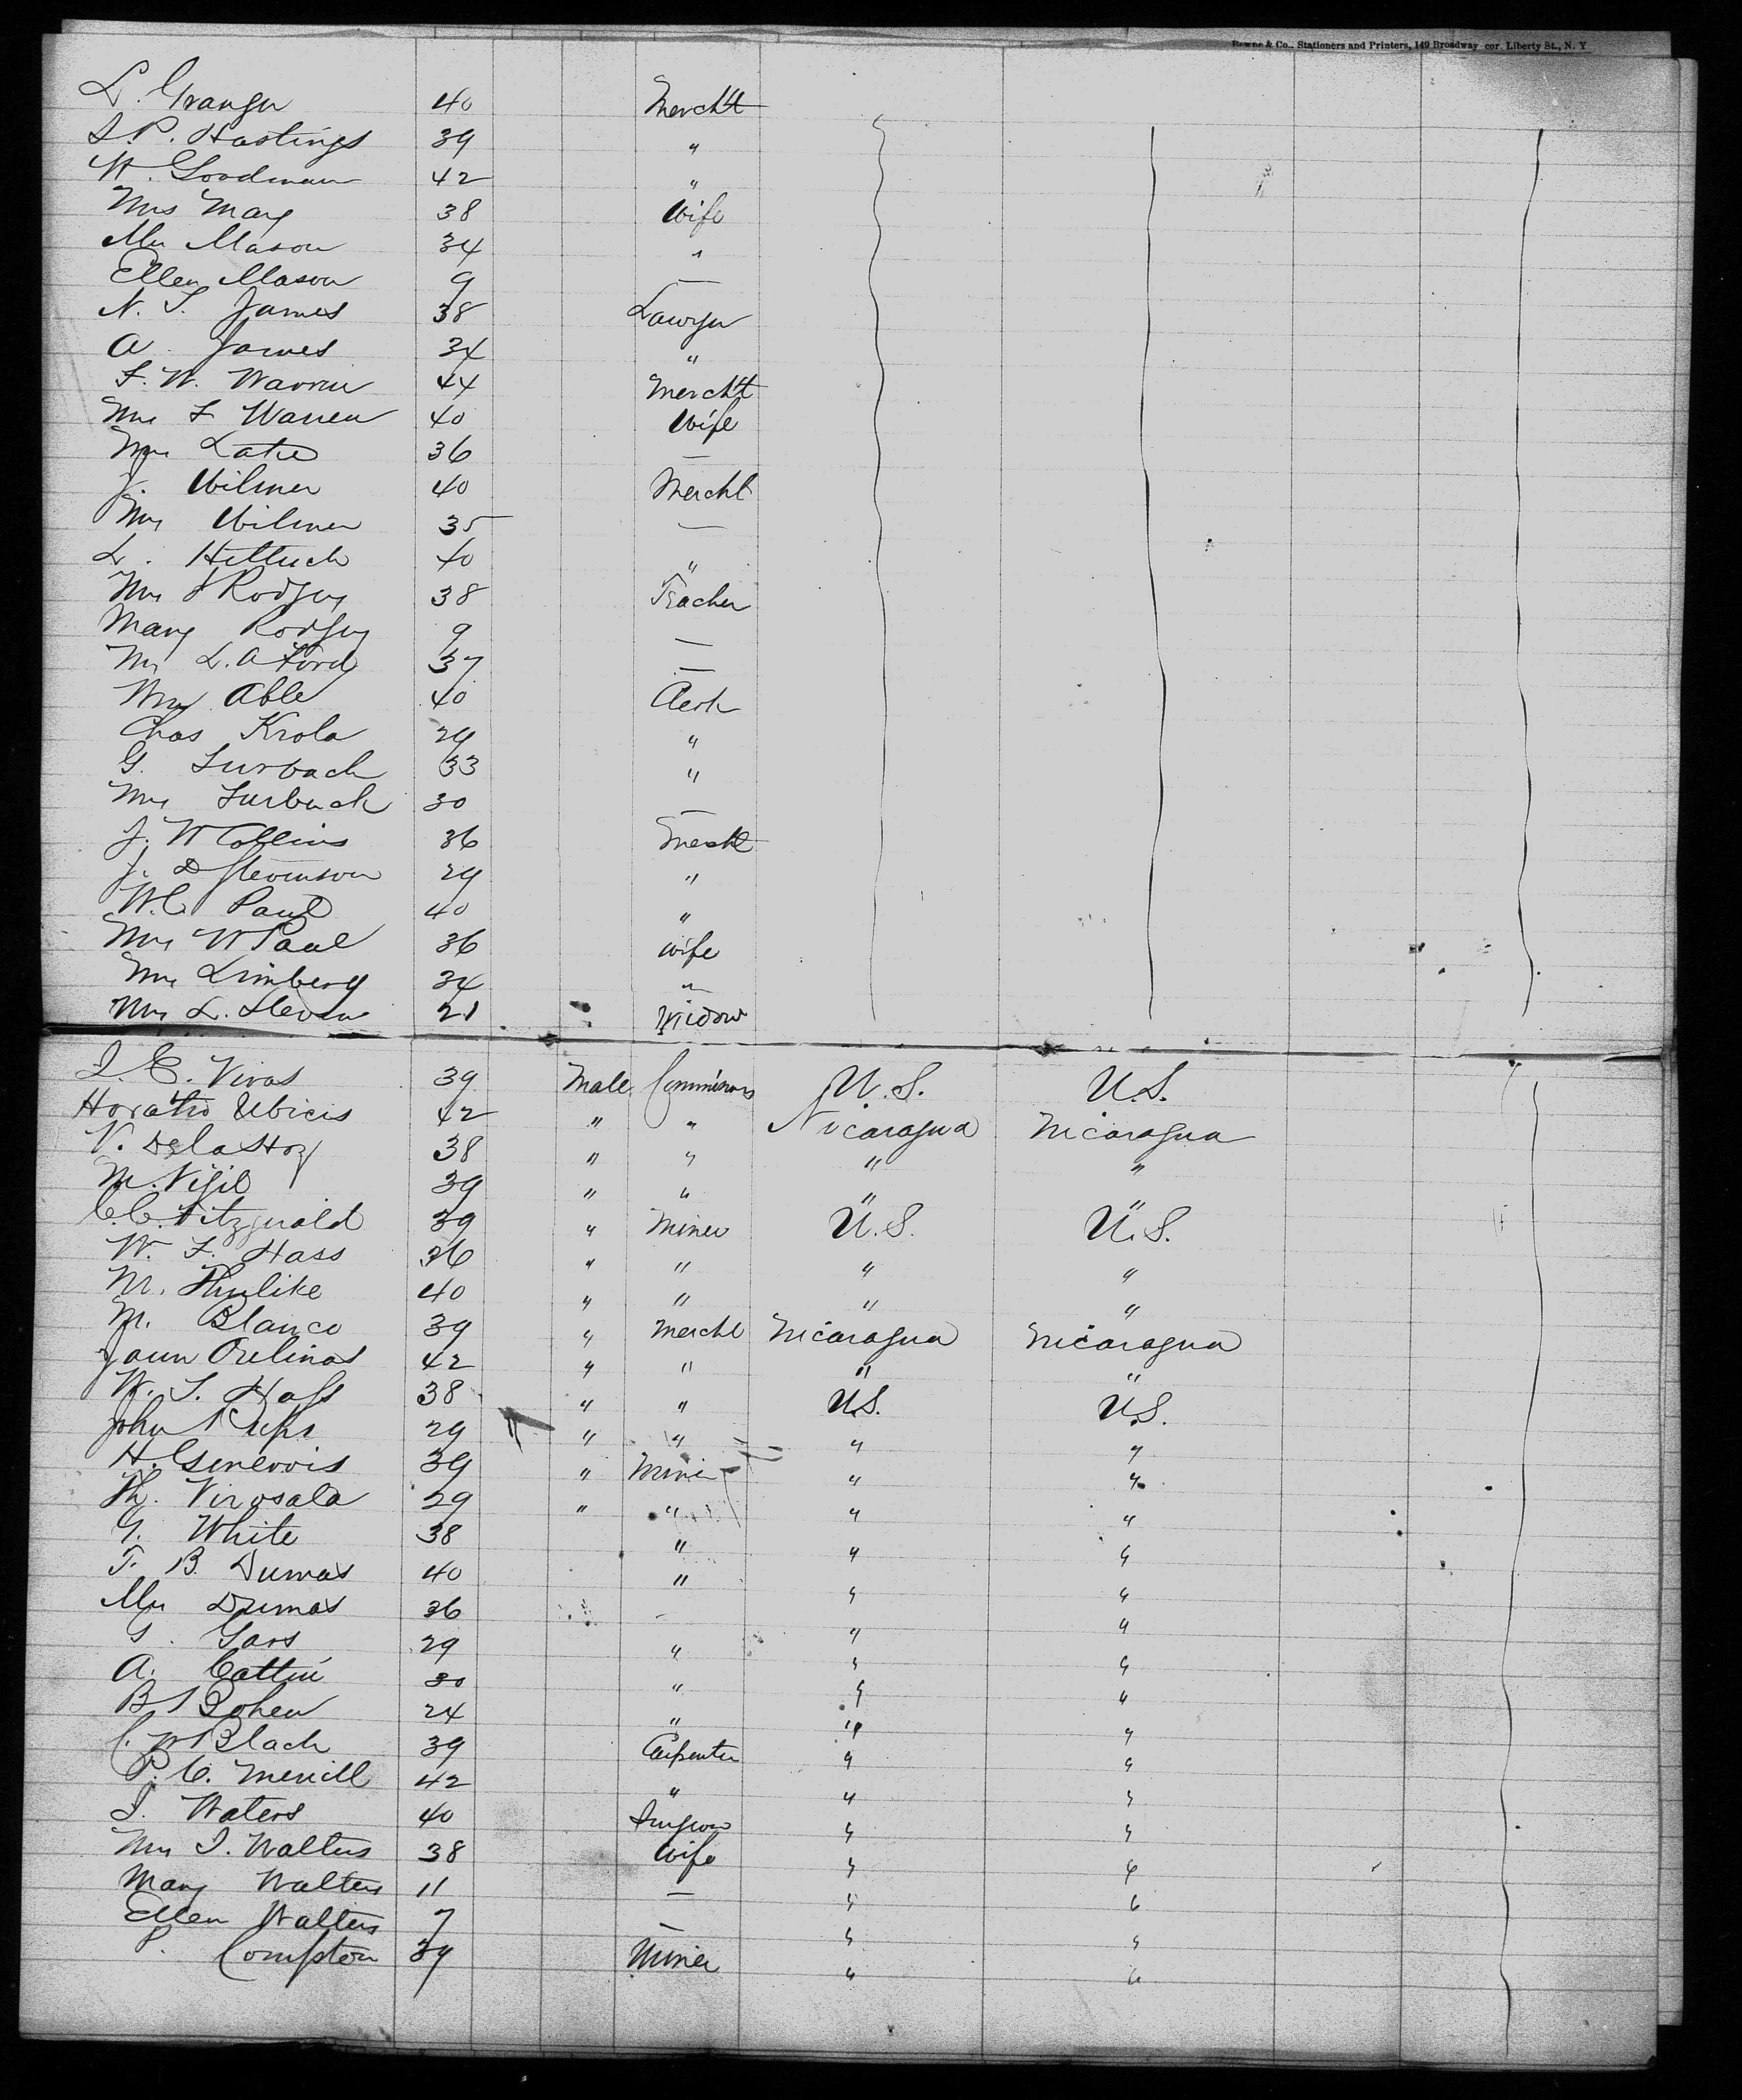 Bowne & Co., Stationers and Printers, 149 Broadway cor. Liberty St., N. Y
L. Granger 40 Mercht
S. P. Hastings 39 "
W. Goodman 42 "
Mrs Mary 38 Wife
Mrs Mason 34 "
Ellen Mason 9 —
N. S. James 38 Lawyer
A. James 34 "
F. W. Warren 44 Mercht
Mrs F Warren 40 Wife
Mrs Lake 36 —
J. Wilmer 40 Mercht
Mrs Wilmer 35 —
L. 40 "
Mrs J Rodgers 38 Teacher
Mary Rodgers 9 —
Mrs L. A Ford 37 —
Wm Able 40 Clerk
Chas Krola 29 "
G. Surbach 33 "
Mrs Surbach 30 —
J. W Collins 36 Mercht
J. D Stevenson 29 "
W. C. Paul 40 "
Mrs W Paul 36 Wife
Mrs Limberg 34 "
Mrs L. Stevens 21 Widow
J. E. Vivas 39 Male U.S. U.S.
Horatio Ubicis 42 " " Nicaragua Nicaragua
V. De la Hoz 38 " " " "
M. Vijil 39 " " " "
C. C. Fitzgerald 39 " Miner U.S. U.S.
W. F. Hass 36 " " " "
M. Thulike 40 " " " "
M. Blanco 39 " Mercht Nicaragua Nicaragua
Jaun Orelinas 42 " " " "
W. S. Hass 38 " " U.S. U.S.
John 29 " " " "
H. Genervois 39 " Miner " "
Th. Virosala 29 " " " "
G. White 38 " " "
T. B. Dumas 40 " " "
Mrs Dumas 36 - " "
G. Gars 29 " " "
A. Cattin 30 " " "
B S Cohen 24 " " "
C. W Black 39 Carpenter " "
P. C. Merrill 42 " " "
J. Waters 40 Surgeon " "
Mrs J. Walters 38 Wife " "
Mary Walters 11 — " "
Ellen Walters 7 — " "
Compton 39 Miner " "